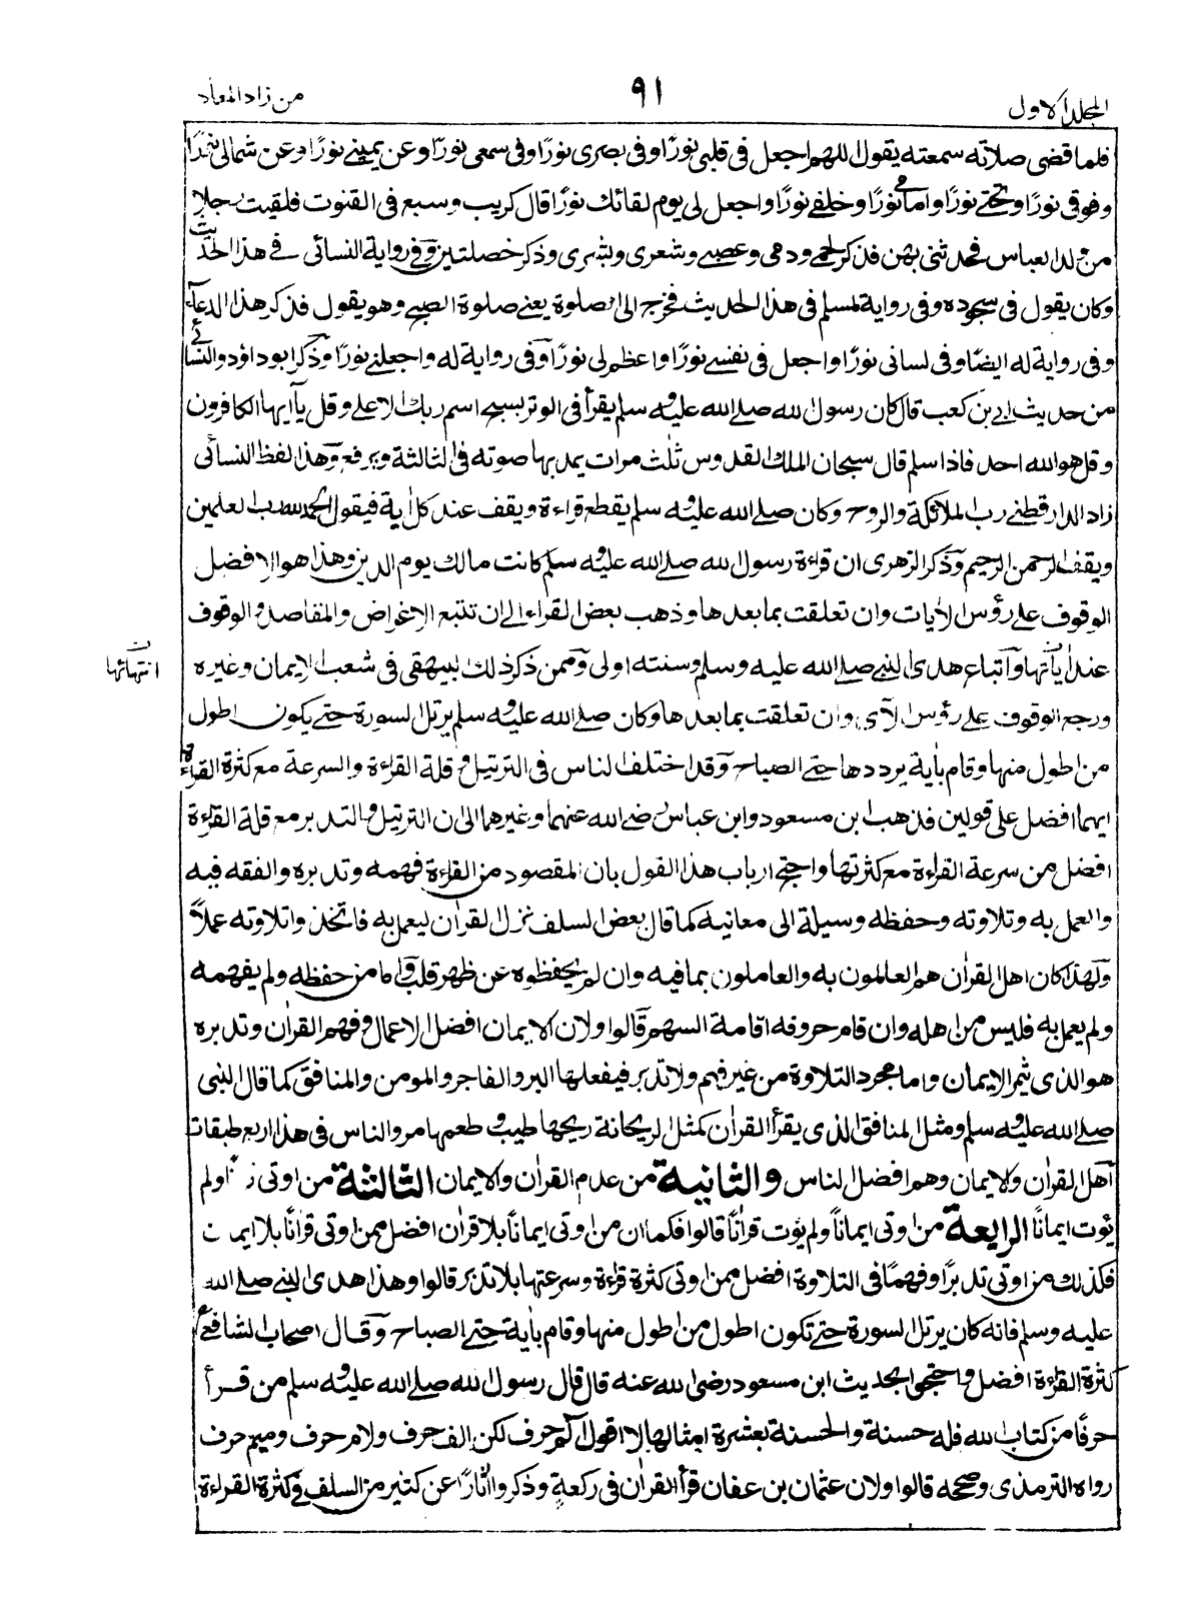 المجلد الاول
٩١
من زاد المعاد
فلما قضى صلاته سمعته يقول اللهم اجعل فى قلبى نورًا وفى بصرى نورًا وفى سمعى نورًا وعن يمينے نورًا وعن شمالى نورًا
وفوقى نورًا وتحتے نورًا وامامى نورًا وخلفے نورًا واجعل لى يوم لقائك نورًا قال كريب وسبع فى القنوت فلقيت رجلا
من ولد العباس فحدثنى بهن فذكر لحمے ودمى وعصبے وشعرى وبشرى وذكر خصلتين وفى رواية النسائى فے هذا الحديث
وكان يقول فى سجوده وفى رواية لمسلم فى هذا الحديث فخرج الى الصلوة يعنے صلوة الصبح وهو يقول فذكر هذا الدعاء
وفى رواية له ايضًا وفى لسانى نورًا واجعل فى نفسے نورًا واعظم لى نورًا وفى رواية له واجعلنے نورًا وذكر ابوداؤد والنسائے
من حديث ابى بن كعب قال كان رسول الله صلے الله عليه وسلم يقرأ فى الوتر بسبح اسم ربك الاعلے وقل يآايها الكافرون
وقل هو الله احد فاذا سلم قال سبحان الملك القدوس ثلٰث مرات يمد بها صوته فى الثالثة ويرفع وهذا لفظ النسائى
زاد الدارقطنے رب الملائكة والروح وكان صلے الله عليه وسلم يقطع قراءة ويقف عند كل اٰية فيقول الحمد لله رب العلمين
ويقف الرحمن الرحيم وذكر الزهرى ان قراءة رسول الله صلے الله عليه وسلم كانت مالك يوم الدين وهذا هو الافضل
الوقوف علے رؤس الاٰيات وان تعلقت بما بعدها وذهب بعض القراء الے ان تتبع الاغراض والمقاصد والوقوف
عند اٰياتها واتباع هدى النبے صلے الله عليه وسلم وسنته اولى وممن ذكر ذلك البيهقى فى شعب الايمان وغيره
انتهائها
ورجح الوقوف علے رؤس الآى وان تعلقت بما بعدها وكان صلے الله عليه وسلم يرتل السورة حتے يكون اطول
من اطول منها وقام باٰية يرددها حتے الصباح وقد اختلف الناس فى الترتيل وقلة القراءة والسرعة مع كثرة القراءة
ايهما افضل على قولين فذهب ابن مسعود وابن عباس رضے الله عنهما وغيرهما الى ان الترتيل والتدبر مع قلة القراءة
افضل من سرعة القراءة مع كثرتها واحتج ارباب هذا القول بان المقصود من القراءة فهمه وتدبره والفقه فيه
والعمل به وتلاوته وحفظه وسيلة الى معانيه كما قال بعض السلف نزل القراٰن ليعمل به فاتخذوا تلاوته عملاً
ولهذا كان اهل القراٰن هم العالمون به والعاملون بما فيه وان لم يحفظوه عن ظهر قلب واما من حفظه ولم يفهمه
ولم يعمل به فليس من اهله وان قام حروفه اقامة السهم قالوا ولان الايمان افضل الاعمال وفهم القراٰن وتدبره
هو الذى يثمر الايمان واما مجرد التلاوة من غير فهم ولا تدبر فيفعلها البر والفاجر والمومن والمنافق كما قال النبى
صلے الله عليه وسلم ومثل المنافق الذى يقرأ القراٰن كمثل الريحانة ريحها طيب وطعمها مر والناس فى هذا اربع طبقات
اهل القراٰن والايمان وهم افضل الناس والثانية من عدم القراٰن والايمان الثالثة من اوتى ولم
يؤت ايمانًا الرابعة من اوتى ايمانًا ولم يؤت قراٰنًا قالوا فكما ان من اوتى ايمانًا بلا قراٰن افضل ممن اوتى قراٰنًا بلا ايمان
فكذلك من اوتى تدبرًا وفهمًا فى التلاوة افضل ممن اوتى كثرة قراءة وسرعتها بلا تدبر قالوا وهذا هدى النبے صلے الله
عليه وسلم فانه كان يرتل السورة حتے تكون اطول من اطول منها وقام باٰية حتے الصباح وقال اصحاب الشافعے
كثرة القراءة افضل واحتجوا بحديث ابن مسعود رضى الله عنه قال قال رسول الله صلے الله عليه وسلم من قرأ
حرفًا من كتاب الله فله حسنة والحسنة بعشرة امثالها لا اقول الم حرف لكن الف حرف ولام حرف وميم حرف
رواه الترمذى وصححه قالوا ولان عثمان بن عفان قرأ القراٰن فى ركعة وذكروا اٰثارًا عن كثير من السلف فى كثرة القراءة